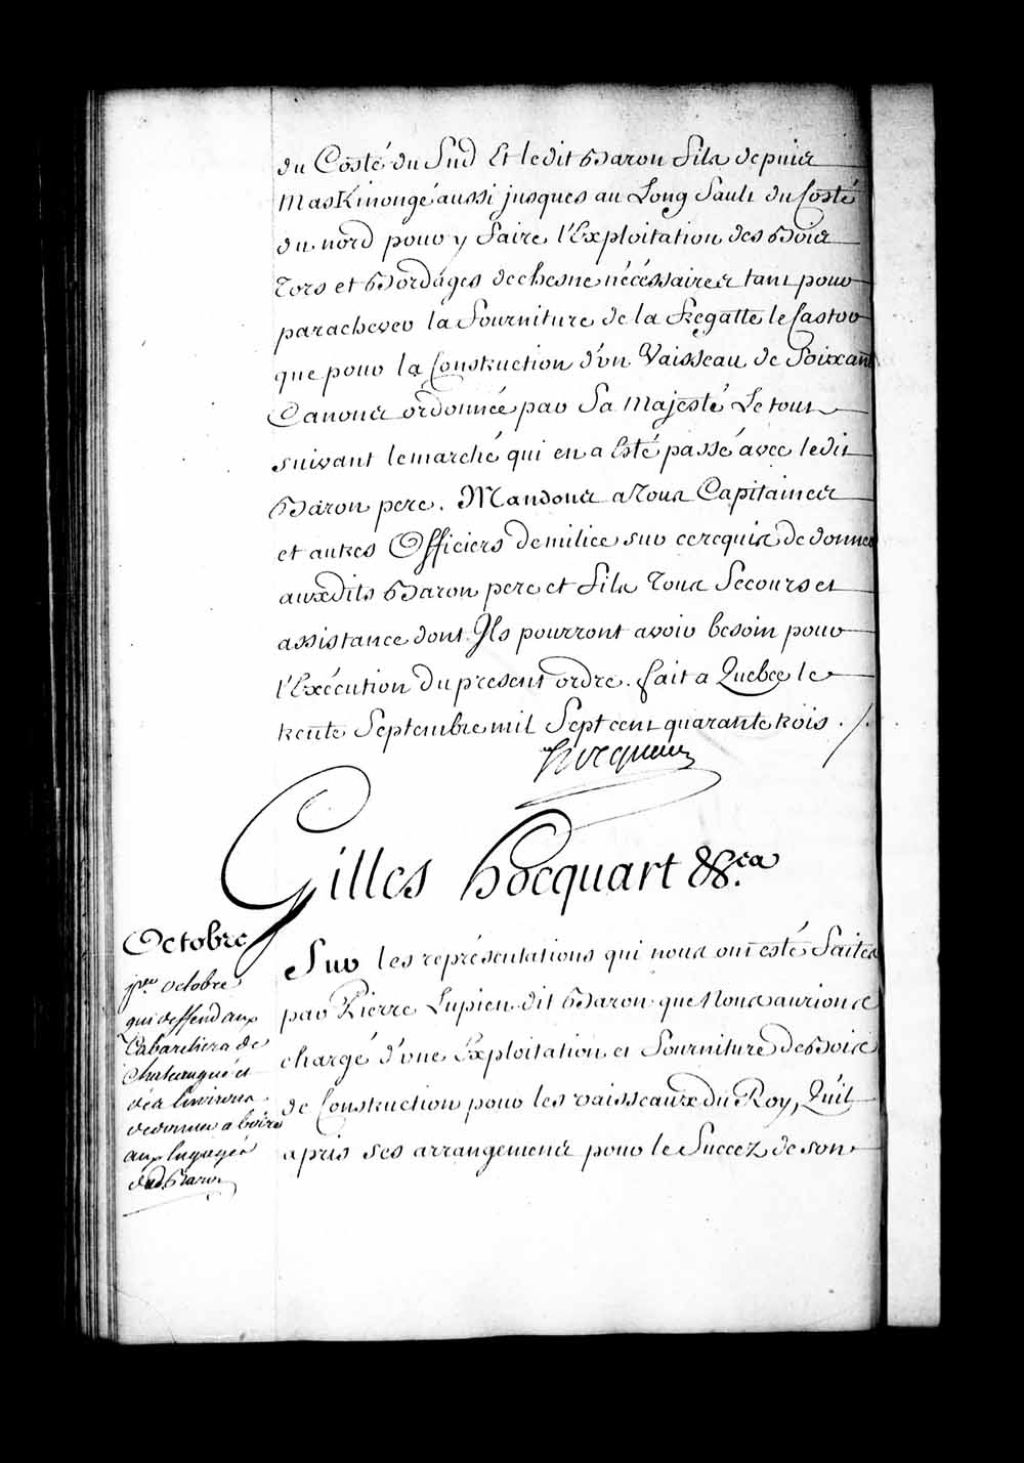 du Costé du Sud Et ledit Baron fils depuis
Maskinongé aussi jusques au Long Sault du Costé
du nord pour y faire l'Exploitation des Bois
Tors et Bordages de chesne nécéssaires tant pour
parachever la fourniture de la fregatte le Castor
que pour la Construction d'un Vaisseau de Soixante
Canons ordonnée par Sa Majesté Le tout
suivant le marché qui en a Esté passé avec ledit
Baron pere. Mandons a Tous Capitaines
et autres Officiers de milice sur ce requis de donner
auxdits Baron pere et fils Tous Secours et
assistance dont Ils pourront avoir besoin pour
l'Exécution du present ordre. fait a Quebec le
trente Septembre mil Sept cent quarante trois ./.
Hocquart
Gilles Hocquart &c.a
Octobre
jer. octobre
qui deffend aux
Cabaretiers de
Chateaugué et
des Environs
de donner a boire
aux Engagés
dud. Baron
Sur les représentations qui nous ont esté faites
par Pierre Lupien dit Baron que Nous aurions
chargé d'une Exploitation et fourniture de Bois
de Construction pour les vaisseaux du Roy, Qu'il
a pris ses arrangements pour le Succez de son